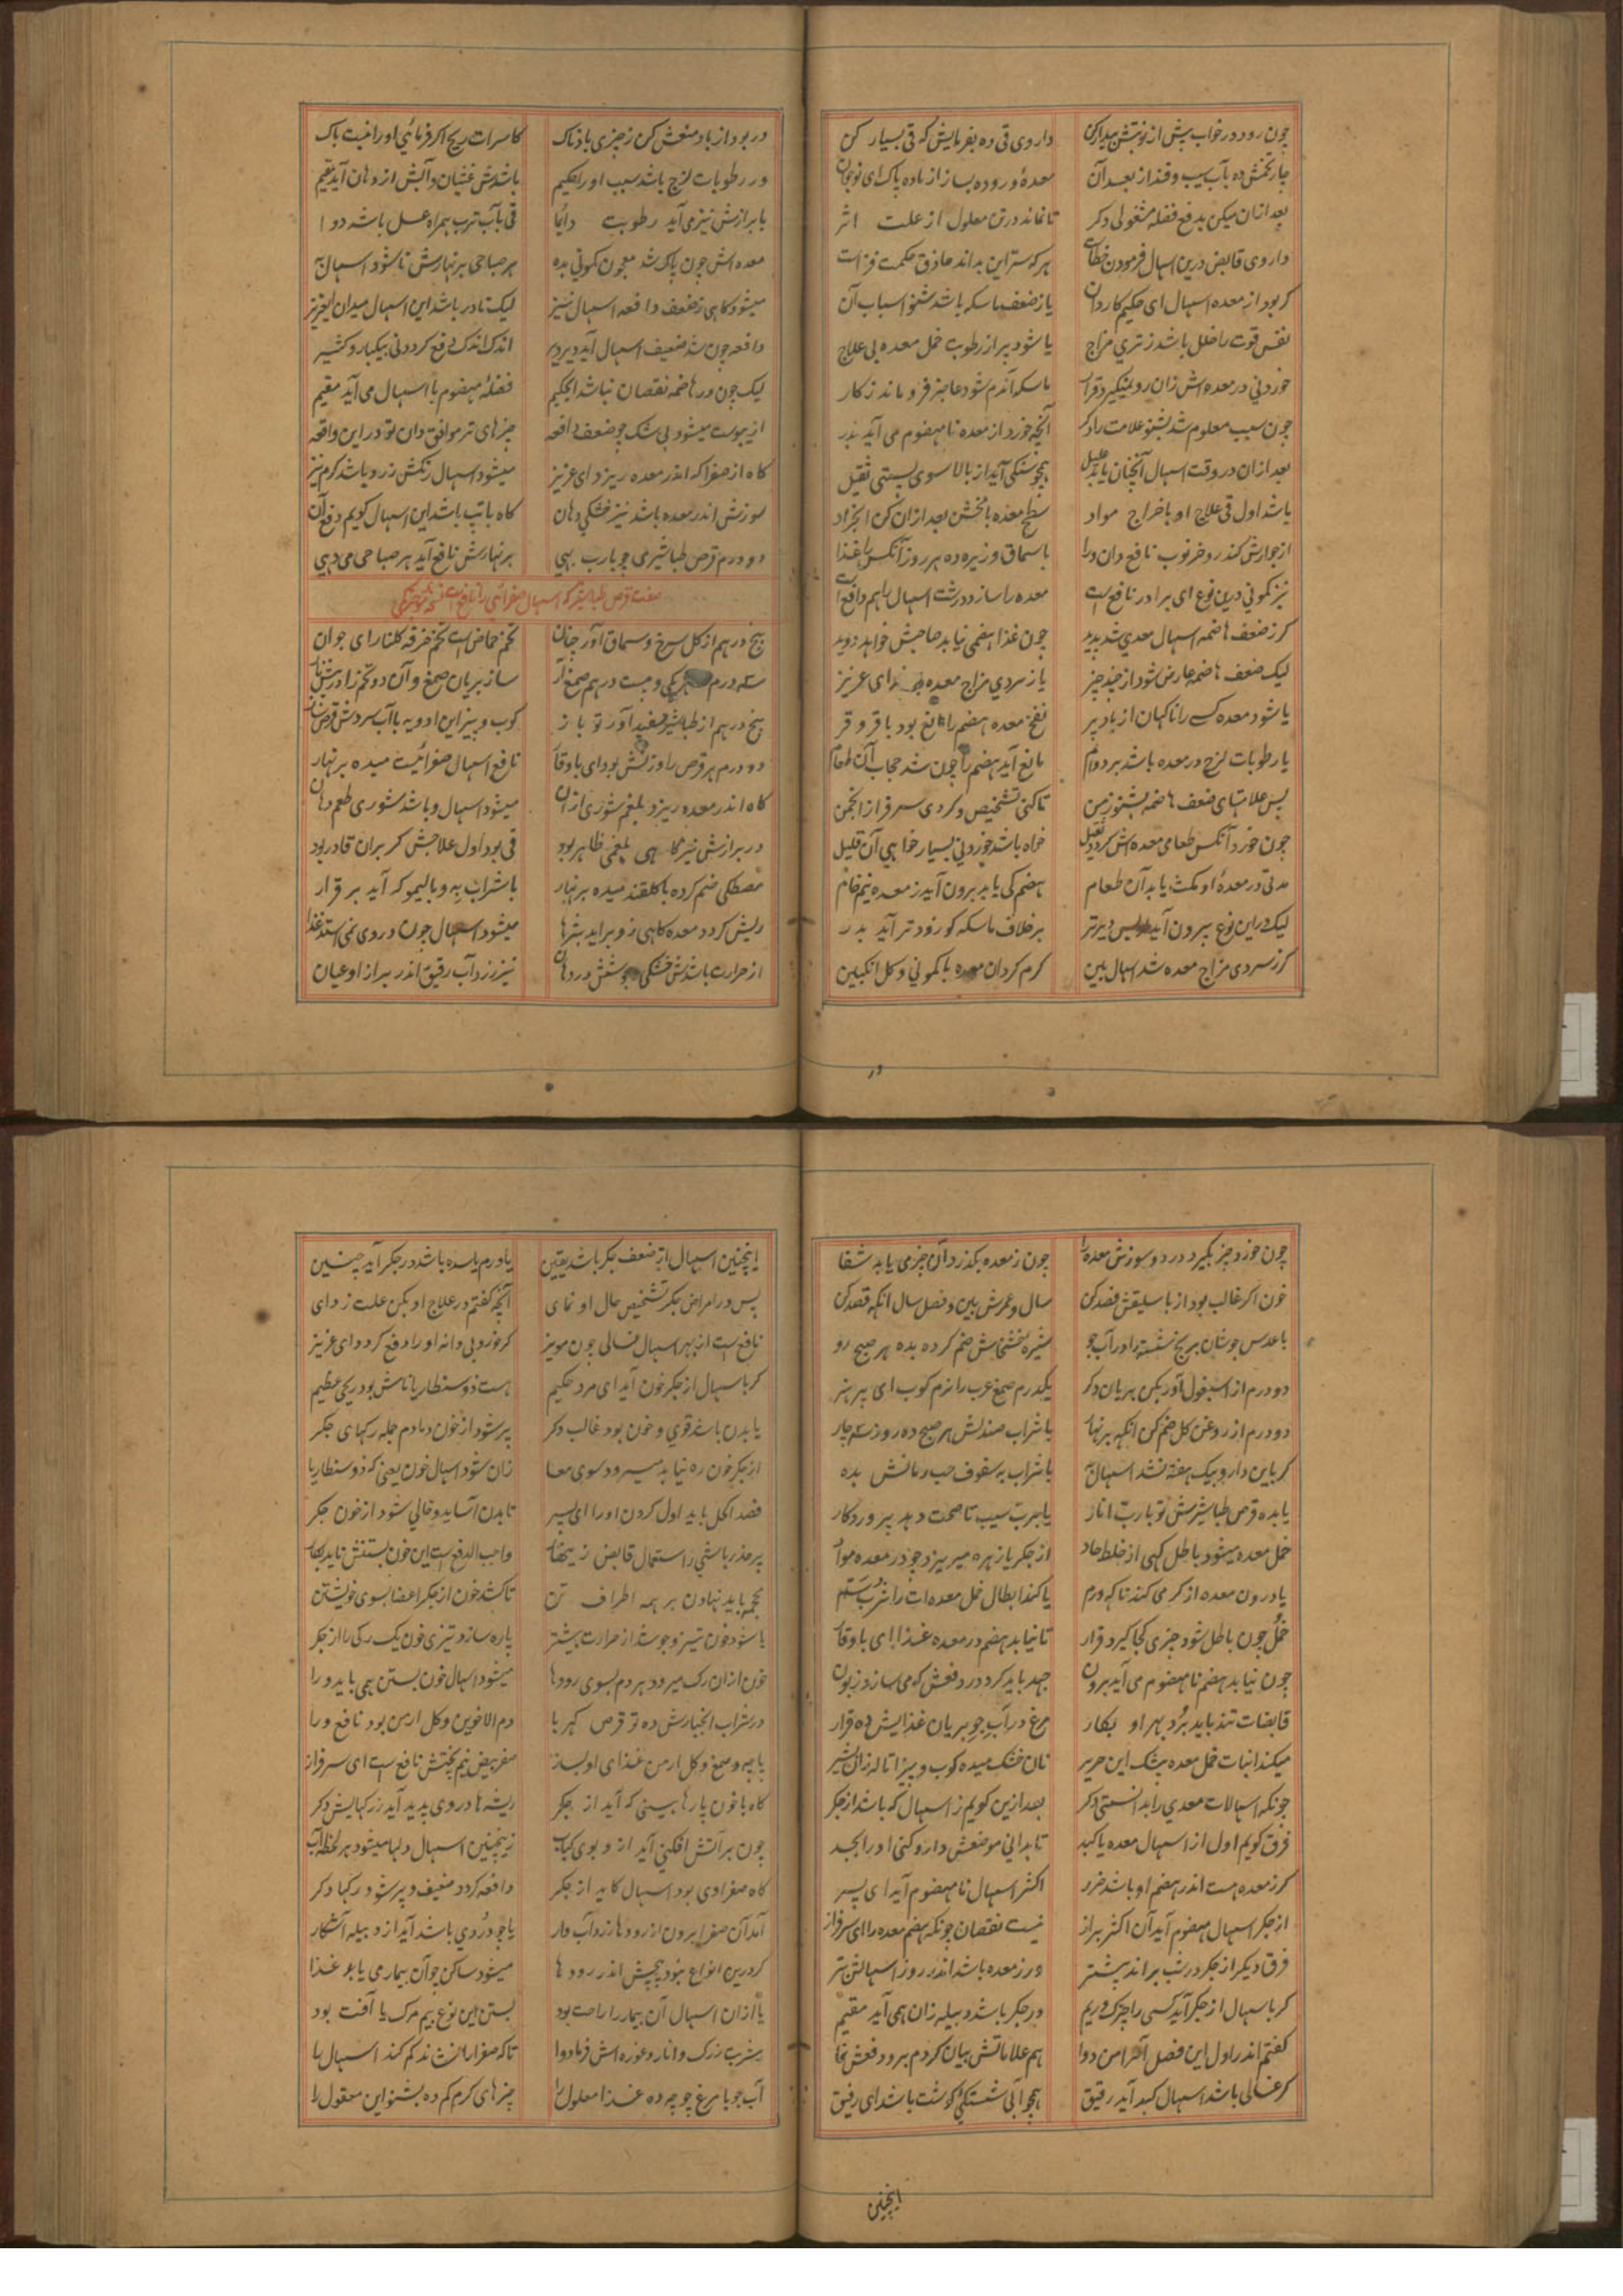 چون رود در خواب پیش از نوبتش بیدار کن داروی قی ده بفرمایش که قی بسیار کن
چار تخمش ده بآب سیب و قند از بعد آن معده و روده بساز از ماده پاک ای نوجوان
بعد ازان میکن بدفع فضله مشغولی دکر تا نماند در تن معلول از علت اثر
داروی قابض درین اسهال فرمودن خطاست هر که سر این بداند حاذق حکمت فزاست
کر بود از معده اسهال ای حکیم کاردان یا ز ضعف ماسکه باشد شنو اسباب آن
نفس قوت را خلل باشد ز تری مزاج یا شود پر از رطوبت خمل معده بی علاج
خوردنی در معده اش زان رو نمیکیرد قرار ماسکه آندم شود عاجز فرو ماند ز کار
چون سبب معلوم شد بشنو علامت را دکر آنچه خورد از معده نا مهضوم می آید بدر
بعد ازان در وقت اسهال آنچنان یابد علیل همچو سنکی آید از بالا سوی پستی ثقیل
باشد اول قی علاج او باخراج مواد سطح معده بعد ازان کن
از جوارش کندر و خرنوب نافع دان ورا با سماق و زیره ده هر روز آنکس را غذا
نیز کمونی درین نوع ای برادر نافع است معده را سازد درشت اسهال را هم دافع است
کر ز ضعف هاضمه اسهال معدی شد پدید چون غذا هضمی نیابد صاحبش خواهد دوید
لیک ضعف هاضمه عارض شود از چند چیز یا ز سردی مزاج معده ای عزیز
یا شود معده کسی را ناکهان از باد پر نفخ معده هضم را مانع بود با قر و قر
یا رطوبات لزج در معده باشد بر دوام مانع آید هضم را چون شد حجاب آن طعام
پس علامتهای ضعف هاضمه بشنو ز من تا کنی تشخیص و کردی سرفراز انجمن
چون خورد آنکس طعامی معده اش کردد ثقیل خواه باشد خوردنی بسیار خواهی آن قلیل
مدتی در معده او مکث یابد آن طعام هضم کی یابد برون آید ز معده نیم خام
لیک در این نوع بیرون آید پس دیرتر بر خلاف ماسکه کو زودتر آید بدر
کر ز سردی مزاج معده شد اسهال بین کرم کردان معده با کمونی و کل انکبین
در
در بود از باد منعش کن ز چیزی بادناک کاسرات ریح اکر فرمائی او را نیست باک
ور رطوبات لزج باشد سبب او را حکیم باشدش غثیان و آبش از دهان آید مقیم
با برازش نیز می آید رطوبت دائما قی بآب ترب همراه عسل باشد دوا
معده اش چون پاک شد معجون کمونی بده هر صباحی بر نهارش تا شود اسهال
میشود کاهی ز ضعف دافعه اسهال نیز لیک نادر باشد این اسهال میدان ای عزیز
دافعه چون شد ضعیف اسهال آید دیر دیر اندک اندک دفع کردد نی بیکبار و کثیر
لیک چون در هاضمه نقصان نباشد ای حکیم فضله مهضوم با اسهال می آید مقیم
از یبوست میشود بی شک چو ضعف دافعه چیزهای تر موافق دان تو در این واقعه
کاه از صفرا که اندر معده ریزد ای عزیز میشود اسهال رنکش زرد باشد کرم نیز
سوزش اندر معده باشد نیز خشکی دهان کاه با تب باشد این اسهال کویم دفع آن
دو درم قرص طباشیری چو با رب بهی بر نهارش نافع آید هر صباحی می دهی
صفت قرص طباشیر که اسهال صفرائی را نافع است
پنج درهم از کل سرخ و سماق آور چنان تخم حماض است تخم خرفه کلنار ای جوان
سه درم یکی و بیست درهم صمغ ساز بریان صمغ و آن دو تخم را
پنج درهم از طباشیر سفید آور تو باز کوب و بیز این ادویه با آب سردش قرص ساز
دو درم هر قرص را وزنش بود ای با وقار نافع اسهال صفرائیست میده بر نهار
کاه اندر معده ریزد بلغم شوری ازان میشود اسهال و باشد شوری طعم دهان
در برازش نیز کاهی بلغمی ظاهر بود قی بود اول علاجش کر بران قادر بود
مصطکی ضم کرده با کلقند میده بر نهار با شراب به و یا لیمو که آید بر قرار
ریش کردد معده کاهی زو براید بثرها میشود اسهال چون در وی نمی استد غذا
از حرارت باشدش خشکی و جوشش در دهان نیز زرد آب رقیق اندر براز او عیان
چون خورد چیزی بکیرد درد و سوزش معده را چون ز معده بکذرد آن چیز می یابد شفا
خون اکر غالب بود از باسلیقش فصد کن سال و عمرش بین و فصل سال آنکه فصد کن
با عدس جوشان برنج شسته را در آب جو شیره خشخاش ضم کرده بده هر صبح رو
دو درم از اسبغول آور بکن بریان دکر یکدرم صمغ عرب را نرم کوب ای پر هنر
دو درم از روغن کل ضم کن آنکه بر نهار با شراب صندلش هر صبح ده روز سه چار
کر باین دارو بیک هفته نشد اسهال به با شراب به سفوف حب رمانش بده
یا بده قرص طباشیرش تو با رب انار یا برب سیب تا صحت دهد پروردکار
خمل معده میشود باطل کهی از خلط حاد از جکر یا زهره میریزد چو در معده مواد
یا درون معده از کرمی کند ناکه ورم یا کند ابطال خمل معده ات را شرب سم
خمل چون باطل شود چیزی کجا کیرد قرار تا نیابد هضم در معده غذا ای با وقار
چون نیابد هضم نا مهضوم می آید برون جهد باید کرد در دفعش که می سازد زبون
قابضات تند باید برد بهر او بکار مرغ در آب جو بریان غذایش ده قرار
میکند انبات خمل معده بیشک این حریر نان خشک میده کوب و بیز
چونکه اسهالات معدی را بدانستی دکر بعد ازین کویم ز اسهالی که باشد از جکر
فرق کویم اول از اسهال معده یا کبد تا بدانی موضعش دارو کنی او را بجد
کر ز معده هست اندر هضم او باشد ضرر اکثر اسهال نا مهضوم آید ای پسر
از جکر اسهال مهضوم آید آن اکثر براز نیست نقصان چونکه هضم معده را ای سرفراز
فرق دیکر از جکر در شب براند بیشتر ور ز معده باشد اندر روز اسهالش بتر
کر باسهال از جکر آید کسی را چرک و ریم در جکر باشد دبیله زان همی آید مقیم
کفتم اندر اول این فصل امراض دوا هم علاماتش بیان کردم برو دفعش نما
کر غسالی باشد اسهال کبد آید رقیق همچو آبی شستکی کوشت باشد ای رفیق
اینچنین
اینچنین اسهال از ضعف جکر باشد یقین یا ورم یا سده باشد در جکر آید چنین
پس در امراض جکر تشخیص حال او نمای آنچه کفتم در علاج او بکن علت زدای
نافع است از بهر اسهال غسالی چون مویز کر خورد بی دانه او را دفع کردد ای عزیز
کر باسهال از جکر خون آید ای مرد حکیم هست ذوسنطاریا نامش بود رنجی عظیم
یا بدن باشد قوی و خون بود غالب دکر پر شود از خون دمادم جمله رکهای جکر
از جکر خون ره نیابد میرود سوی معا زان شود اسهال خون یعنی که ذوسنطاریا
فصد اکحل باید اول کردن او را ای پسر تا بدن آساید و خالی شود از خون جکر
پر حذر باشی ز استعمال قابض زینهار واجب الدفع است این خون بستنش ناید بکار
محجمه باید نهادن بر همه اطراف تن تا کشد خون از جکر اعضا بسوی خویشتن
یا شود خون تیز و جوشد از حرارت بیشتر پاره سازد تیزی خون یک رکی را از جکر
خون ازان رک میرود هر دم بسوی رودها میشود اسهال خون بستن همی باید ورا
در شراب انجبارش ده تو قرص کهربا دم الاخوین و کل ارمن بود نافع ورا
پاچه و صمغ و کل ارمن غذای او بساز صفر بیض نیم پختش نافع است ای سرفراز
کاه با خون پارها بینی که آید از جکر ریشه ها در وی پدید آید ز رکهایش دکر
چون بر آتش افکنی آید ازو بوی کباب زینچنین اسهال دلها میشود هر لحظه آب
کاه صفرادی بود اسهال کاید از جکر دافعه کردد ضعیف و پر شود رکها دکر
آید آن صفرا برون از رودها زرد آب وار یا چو دردی باشد آید از دبیله آشکار
کر درین انواع نبود پیچش اندر رودها میشود ساکن چو آن بیمار می یابد غذا
یا ازان اسهال آن بیمار را راحت بود بستن این نوع بیم مرک یا آفت بود
شربت زرک و انار و غوره اش فرما دوا تا که صفرا را نشاند کم کند اسهال را
آب جو با مرغ جوجه ده غذا معلول را چیزهای کرم کم ده بشنو این معقول را